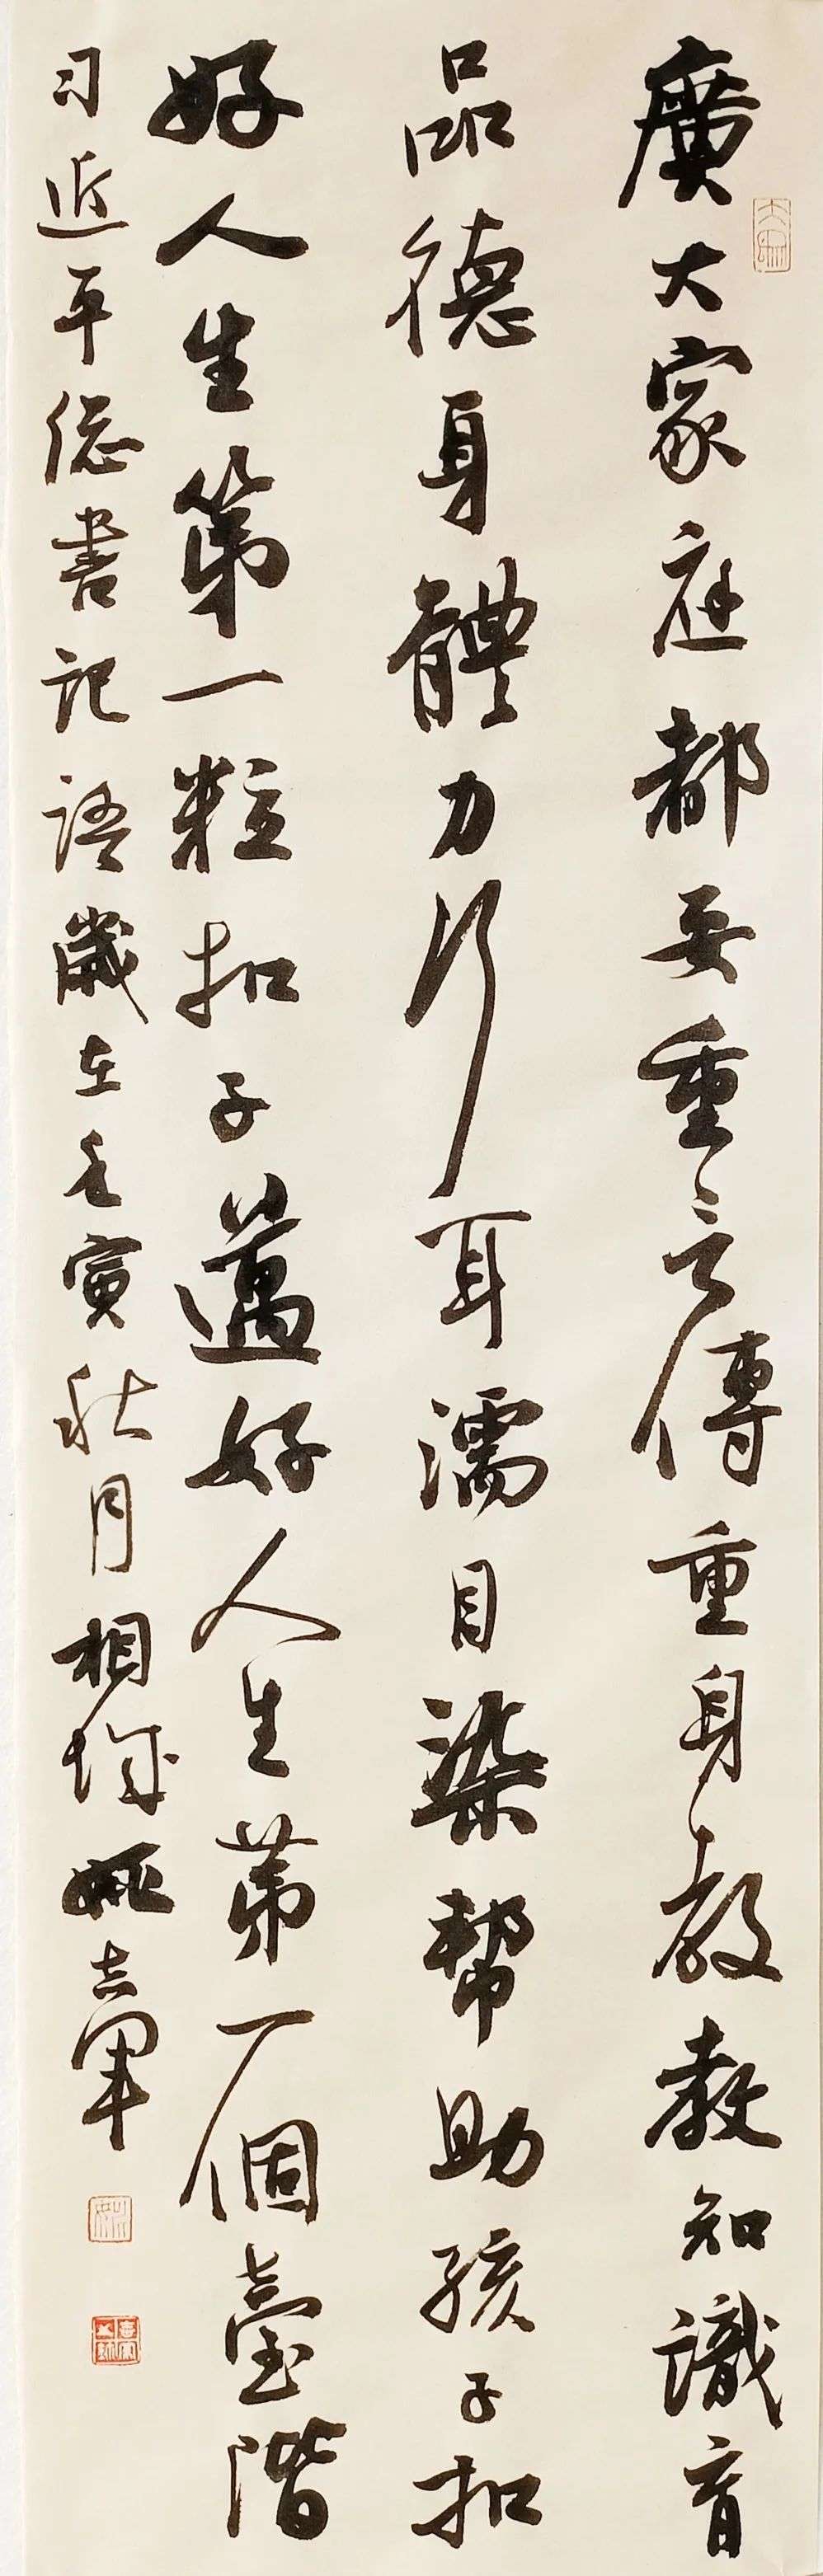 廣大家庭都要重言傳重身教教知識育
品德身體力行耳濡目染幫助孩子扣
好人生第一粒扣子邁好人生第一個臺階
习近平总書記語歲在壬寅秋月相城姚志軍